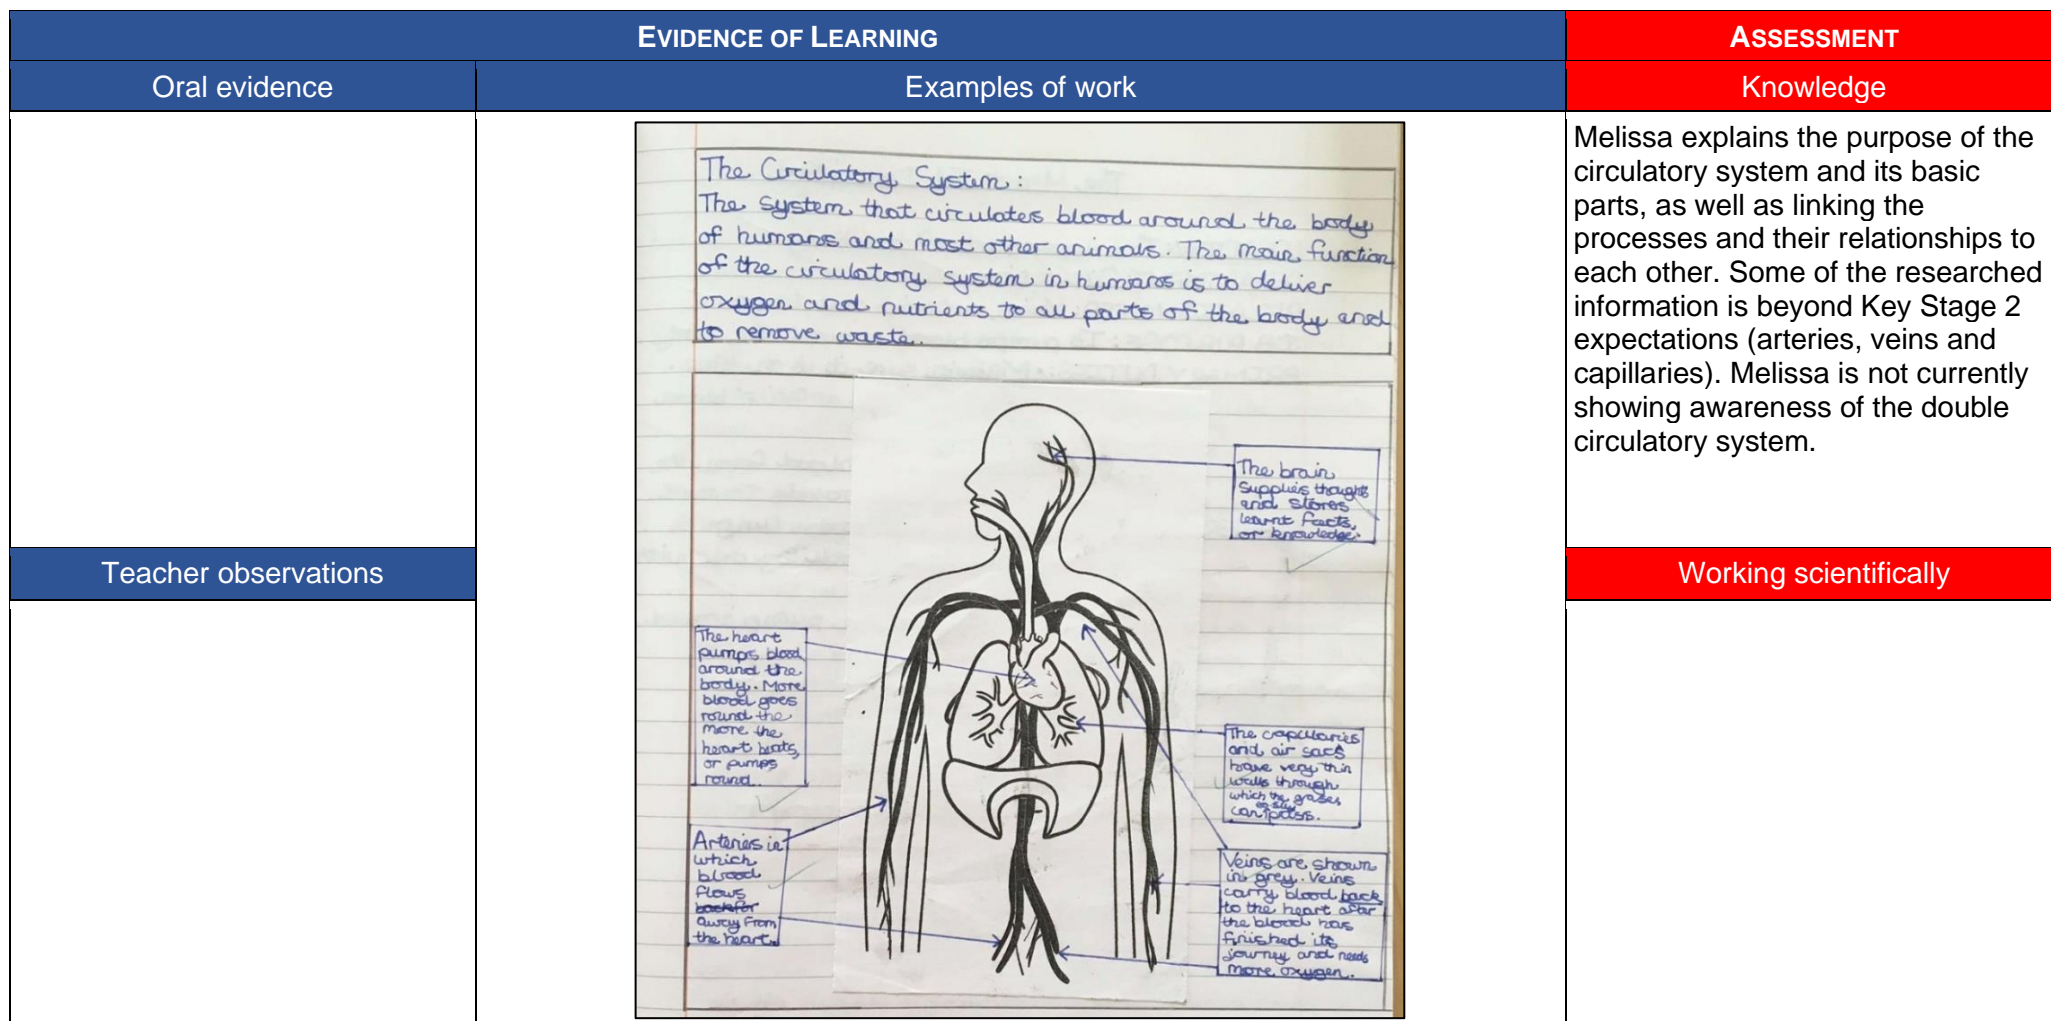 EVIDENCE OF LEARNING
ASSESSMENT
Oral evidence
Examples of work
Knowledge
The Circulatory System:
The system that circulates blood around the body
of humans and most other animals. The main function
of the circulatory system in humans is to deliver
oxygen and nutrients to all parts of the body and
to remove waste.
The brain
supplies thoughts
and stores
learnt facts,
or knowledge.
The heart
pumps blood
around the
body. More
blood goes
round the
more the
heart beats,
or pumps
round.
The capillaries
and air sacs
have very thin
walls through
which the gases
can easily pass.
Arteries in
which
blood
flows
away from
the heart.
Veins are shown
in grey. Veins
carry blood back
to the heart after
the blood has
finished its
journey and needs
more oxygen.
Melissa explains the purpose of the
circulatory system and its basic
parts, as well as linking the
processes and their relationships to
each other. Some of the researched
information is beyond Key Stage 2
expectations (arteries, veins and
capillaries). Melissa is not currently
showing awareness of the double
circulatory system.
Teacher observations
Working scientifically